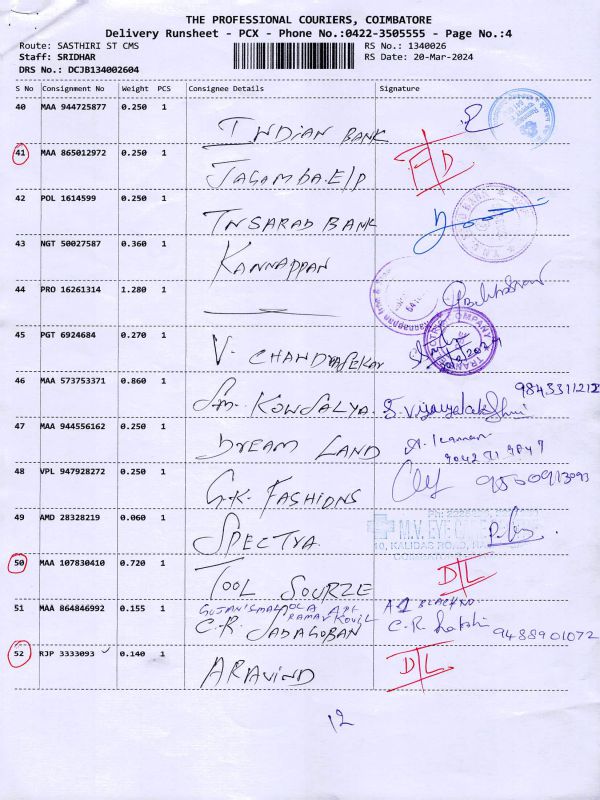 THE PROFESSIONAL COURIERS, COIMBATORE
Delivery Runsheet - PCX - Phone No.:0422-3505555 - Page No.:4
Route: SASTHIRI ST CMS RS No.: 1340026
Staff: SRIDHAR RS Date: 20-Mar-2024
DRS No.: DCJB134002604
S No Consignment No Weight PCS Consignee Details Signature
40 MAA 944725877 0.250 1
INDIAN BANK
41 MAA 865012972 0.250 1
JAGAMBA.E/P
42 POL 1614599 0.250 1
TNSARAD BANK
43 NGT 50027587 0.360 1
KANNAPPAN
44 PRO 16261314 1.280 1
45 PGT 6924684 0.270 1
V. CHANDRASEKAR
46 MAA 573753371 0.860 1
S.M. KOWSALYA. S. Vijayalakshmi 9843311212
47 MAA 944556162 0.250 1
DREAM LAND
48 VPL 947928272 0.250 1
G.K. FASHIONS
49 AMD 28328219 0.060 1
SPECTRA. M.V. EYE
10, KALIDAS ROAD,
50 MAA 107830410 0.720 1
TOOL SOURZE D/L
51 MAA 864846992 0.155 1
C.R. SADAGOBAN C.R. 9488901072
52 RJP 3333093 0.140 1
ARAVIND D/L
12